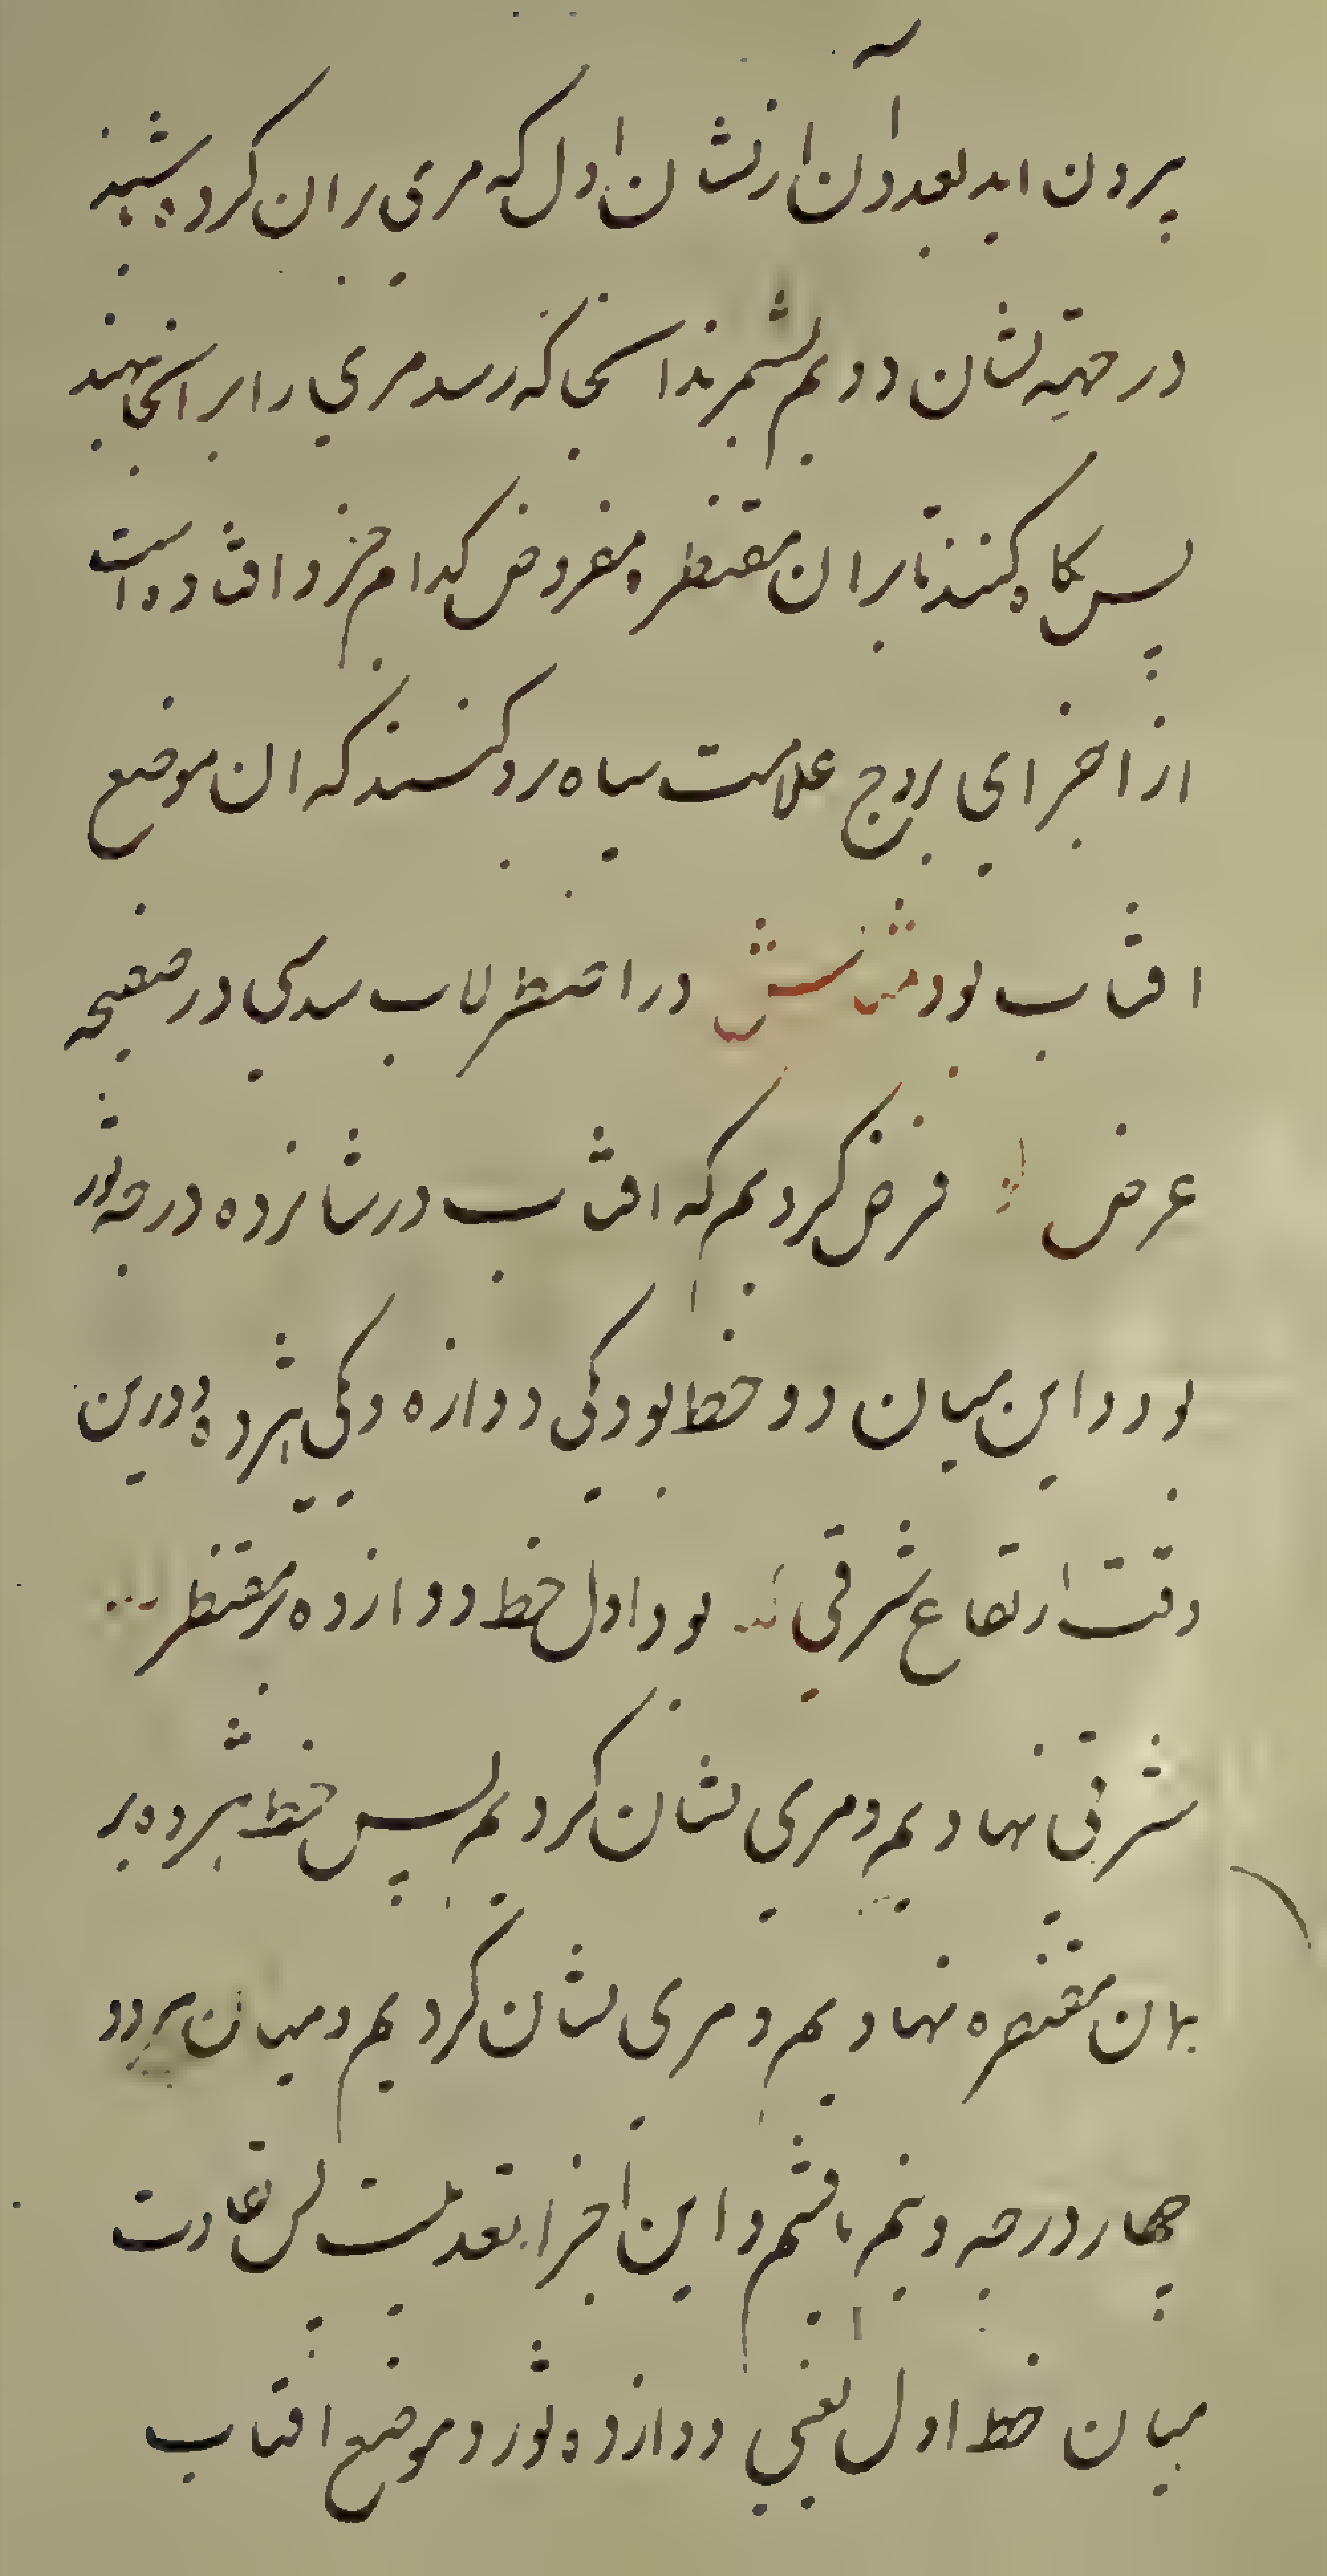 بیرون اید بعد از آن از نشان اول که مری بران کرده شنید
در جهة نشان دویم بشمرند انجا که رسد مری را برانجا نهند
پس نکاه کنند تا بران مقنطره مفروض کدام جزو افتاده است
از اجزای بروج علامت سیاه برو کنند که ان موضع
افتاب بود مثالش در اصطرلاب سدسی در صفیحه
عرض فرض کردیم که افتاب در شانزده درجه ثور
بود و این میان دو خط بود یکی دوازده ویکی هیژده و درین
وقت ارتفاع شرقی بود اول خط دوازده بر مقنطره
شرقی نهادیم و مری نشان کردیم پس خط هیژده بر
بهان مقنطره نهادیم و مری نشان کردیم و میان هر دو
چهار درجه و نیم یافتیم و این اجزا تعدیلست پس تفاوت
میان خط اول یعنی دوازده ثور و موضع افتاب